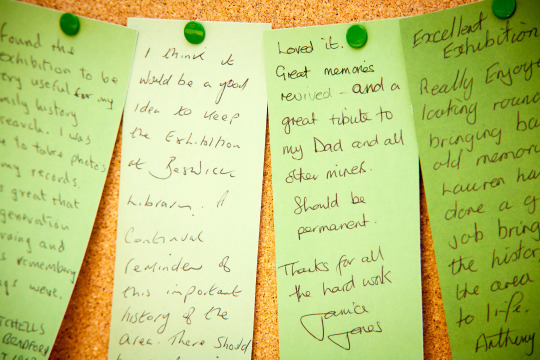 found the
exhibition to be
very useful for my
family history
research. I was
able to take photos
my records.
is great that
generation
and
remembering
were.
MITCHELLS
BRADFORD
I think it
would be a good
idea to keep
the Exhibition
at Beswick
Library. A
Continual
reminder of
this important
history of the
area. There Should
Loved it.
Great memories
revived - and a
great tribute to
my Dad and all
other miners.
Should be
permanent.
Thanks for all
the hard work
Janice
Jones
Excellent
Exhibition
Really Enjoye
looking roun
bringing ba
old memor
Lauren ha
done a g
job bring
the histor
the area
to life.
Anthony